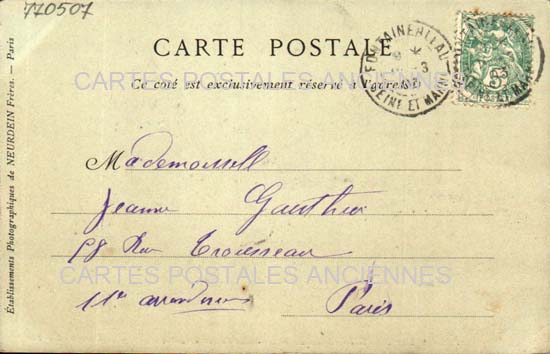 770507
CARTE POSTALE
Ce côté est exclusivement réservé à l'adresse
CARTES POSTALES ANCIENNES
FONTAINEBLEAU
SEINE ET MARNE
Mademoiselle
Jeanne Gauthier
Rue Trousseau
11e arrondissement Paris
CARTES POSTALES ANCIENNES
Etablissements Photographiques de NEURDEIN Frères. — Paris